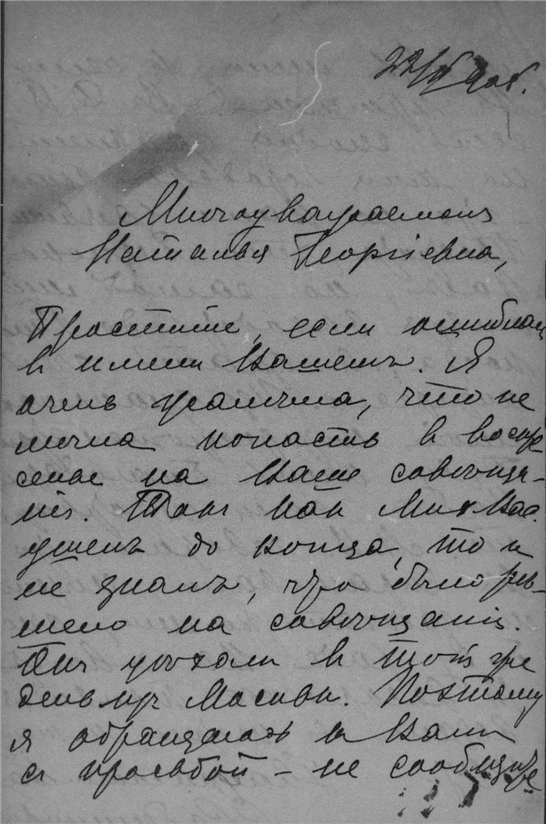 22/IV 908.
Многоуважаемая
Наталья Георгіевна,
Простите, если ошиблась
въ имени Вашемъ. Я
очень жалѣла, что не
могла попасть въ воскре
сенье на Ваше совѣща-
ніе. Такъ какъ Мих Вас
уѣхалъ до конца, то и
не зналъ, что было рѣ-
шено на совѣщаніи.
Онъ уѣхалъ въ тотъ же
день изъ Москвы. Поэтому
я обращаюсь къ Вамъ
съ просьбой – не сообщите